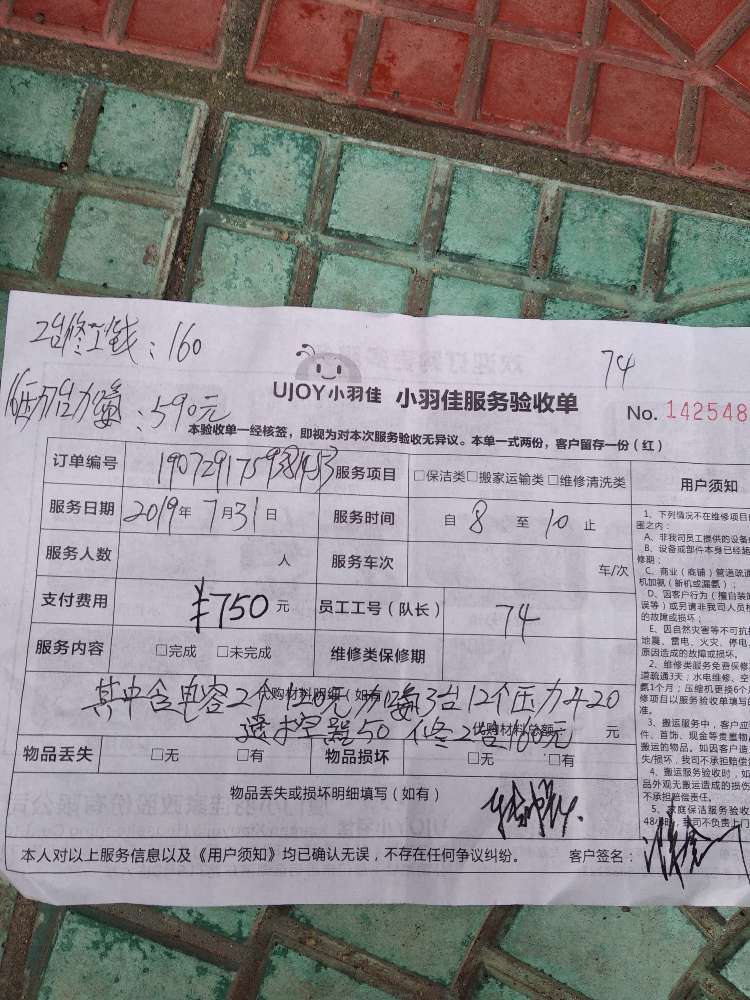 2台修工钱：160
74
UJOY小羽佳 小羽佳服务验收单
No. 142548
：590元
本验收单一经核签，即视为对本次服务验收无异议。本单一式两份，客户留存一份（红）
订单编号 服务项目 □保洁类□搬家运输类□维修清洗类
服务日期 2019年7月31日 服务时间 自8至10止
服务人数 人 服务车次 车/次
支付费用 ¥750元 员工工号（队长） 74
服务内容 □完成 □未完成 维修类保修期
代购材料明细（如有）
其中含电容2个120元加氨3台12个压力420
遥控器50 修2台160元
代购材料总额： 元
物品丢失 □无 □有 物品损坏 □无 □有
物品丢失或损坏明细填写（如有）
本人对以上服务信息以及《用户须知》均已确认无误，不存在任何争议纠纷。 客户签名：
用户须知
1、下列情况不在维修项目
围之内：
A、非我司员工提供的设备
B、设备或部件本身已经
修期；
C、商业（商铺）管道疏通
机加氨（新机或漏氨）；
D、因客户行为（擅自装
误等）或另请非我司人员
的故障或损坏；
E、因自然灾害等不可抗
地震、雷电、火灾、停电、
原因造成的故障或损坏。
2、维修类服务免费保修
道疏通3天；水电维修、空
氨1个月；压缩机更换6个
修项目以服务验收单填写的
准。
3、搬运服务中，客户应
件、首饰、现金等贵重物
搬运的物品。如因客户造
失/损坏，我司不承担赔偿
4、搬运服务验收时，如
品外观无搬运造成的损伤
不承担赔偿责任。
5、家庭保洁服务验收
48小时，我司不负责上门